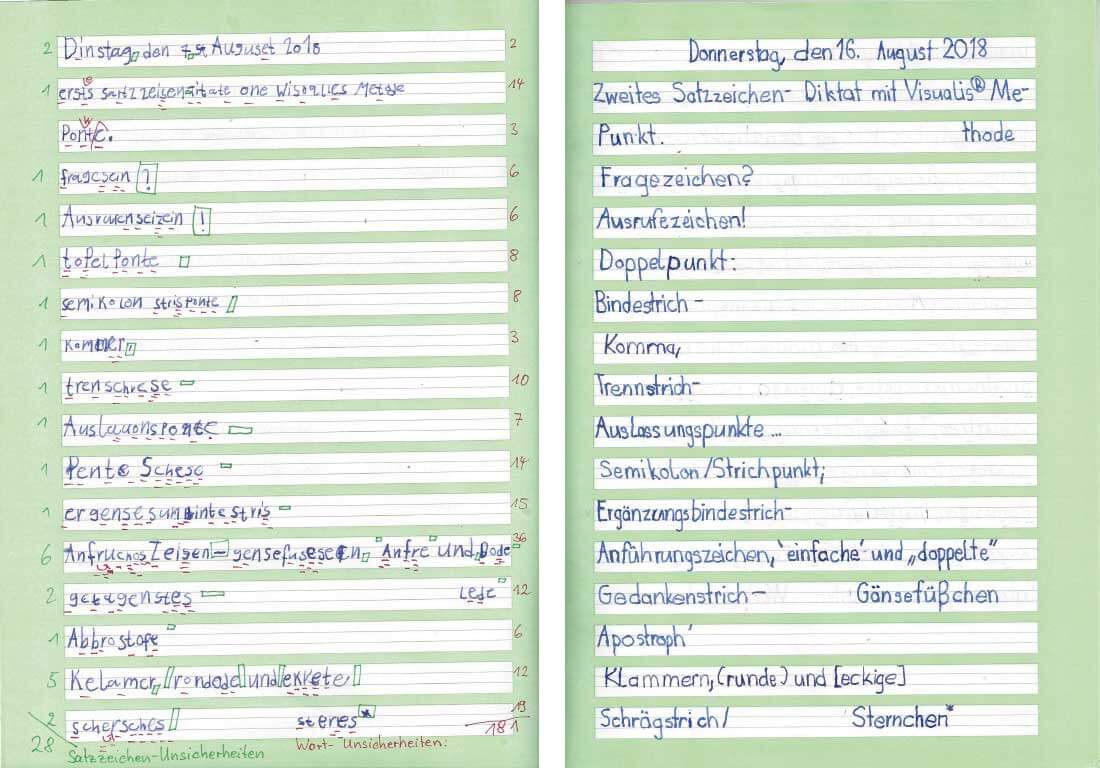 2 Dinstag, den 7. Auguset 2018 2
1 ersts satzzeisen one Wisoalies Metode 14
Ponte. 3
1 fragesein ? 6
1 Ausruenseizein ! 6
1 tofelponte 8
1 semikolon strisponte 8
1 Kommer 3
1 trenschrese 10
1 Auslauonsponte 7
1 Pente Schese 14
1 ergensesunbintestris 15
6 Anfruchos Zeisen gensefusesen Anfre und Dode 36
2 getagenstes Lede 12
1 Abbrostofe 6
5 Kelamer rondode und ekrete 12
2 schersches steres* 19
28 Satzzeichen-Unsicherheiten Wort-Unsicherheiten: 181
Donnerstag, den 16. August 2018
Zweites Satzzeichen-Diktat mit Visualis® Me-
Punkt. thode
Fragezeichen?
Ausrufezeichen!
Doppelpunkt:
Bindestrich-
Komma,
Trennstrich-
Auslassungspunkte...
Semikolon/Strichpunkt;
Ergänzungsbindestrich-
Anführungszeichen, ‚einfache‘ und „doppelte“
Gedankenstrich – Gänsefüßchen
Apostroph'
Klammern, (runde) und [eckige]
Schrägstrich/ Sternchen*